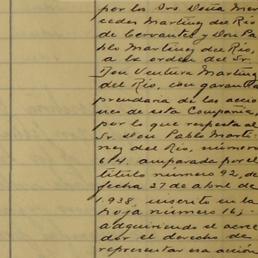 por los Drs Doña Mer-
cedes Martinez del Rio
de Cervantes y Don Pa-
blo Martinez del Rio,
a la orden del Sr.
Don Ventura Martinez
del Rio, con garantia
prendaria de las accio-
nes de esta Compañia,
por lo que respecta al
Sr. Don Pablo Marti-
nez del Rio, número
614. amparada por el
título número 92, de
fecha 27 de abril de
1938, inscrito en la
hoja número 16;
adquiriendo el acree-
dor el derecho de
representar esa acción